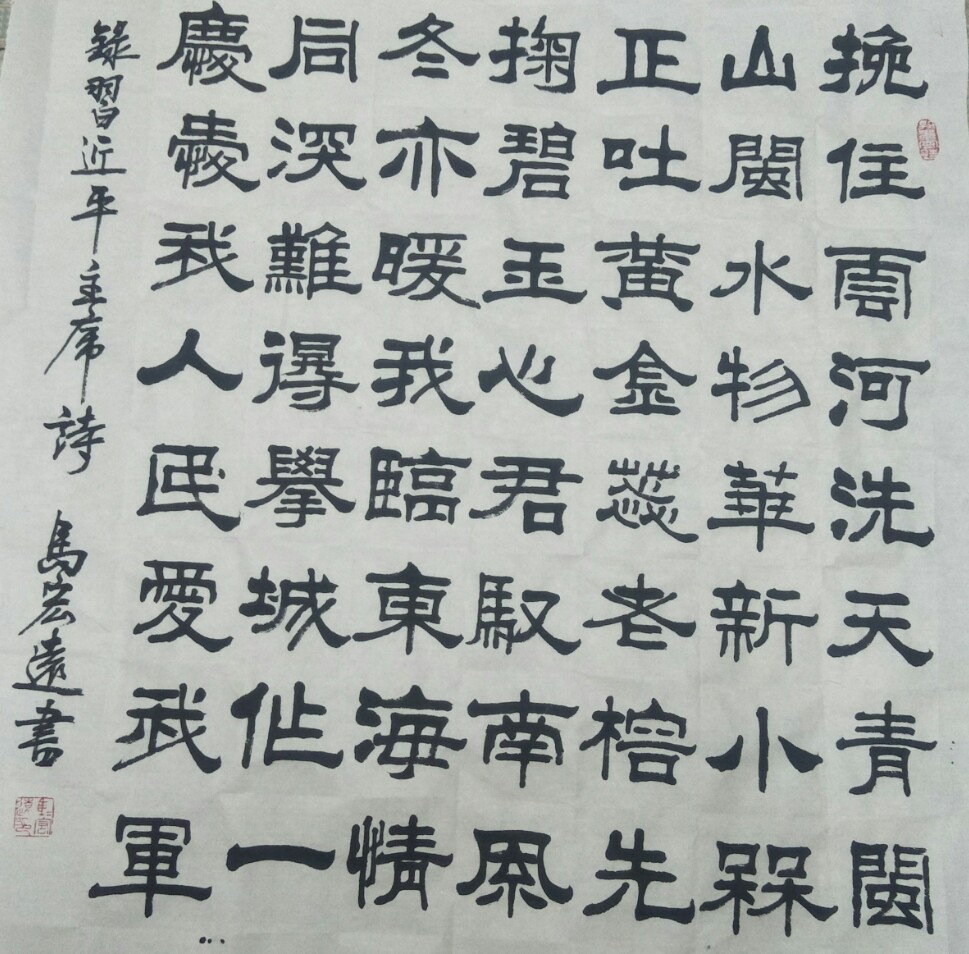 挽住雲河洗天青閩
山閩水物華新小槑
正吐黃金蕊老榕先
掬碧玉心君馭南風
冬亦暖我臨東海情
同深難得舉城作一
慶愛我人民愛我軍
錄習近平主席詩 馬宏遠書